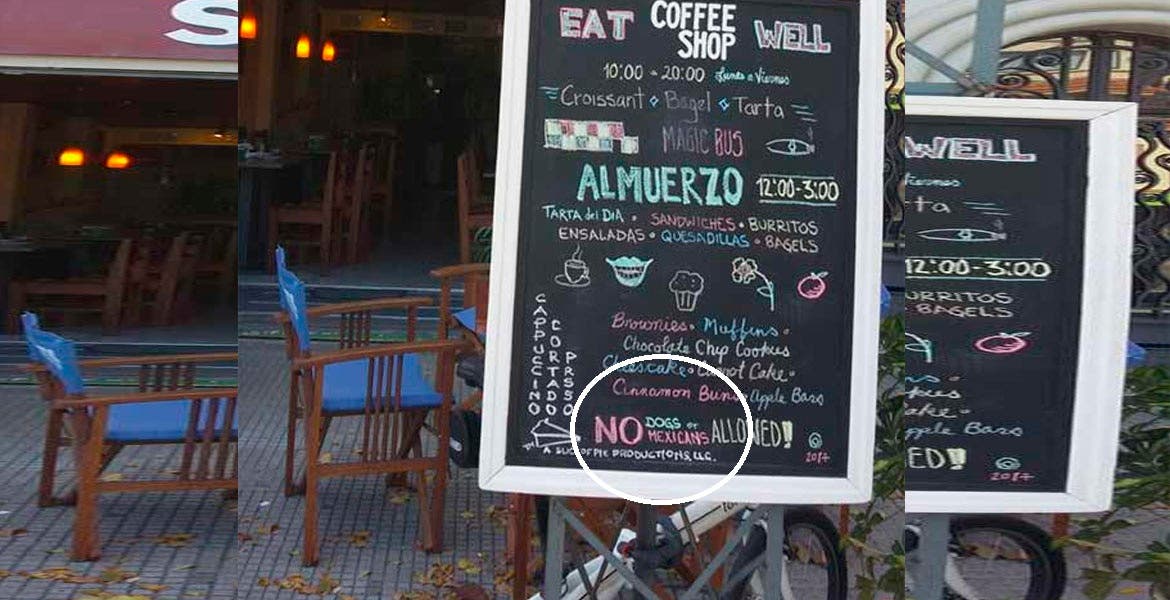 S
EAT COFFEE SHOP WELL
10:00 - 20:00 Lunes a Viernes
Croissant Bagel Tarta
MAGIC BUS
ALMUERZO 12:00-3:00
TARTA del DIA • SANDWICHES • BURRITOS
ENSALADAS • QUESADILLAS • BAGELS
CAPPUCCINO
CORTADO
Brownies • Muffins •
Chocolate Chip Cookies
Cheescake • Carrot Cake •
Cinnamon Buns • Apple Bars
NO DOGS or MEXICANS ALLOWED!
A SLICE OF PIE PRODUCTIONS, LLC.
2017
WELL
iernes
ta
12:00-3:00
URRITOS
BAGELS
kies
ake •
pple Bars
ED!
2017